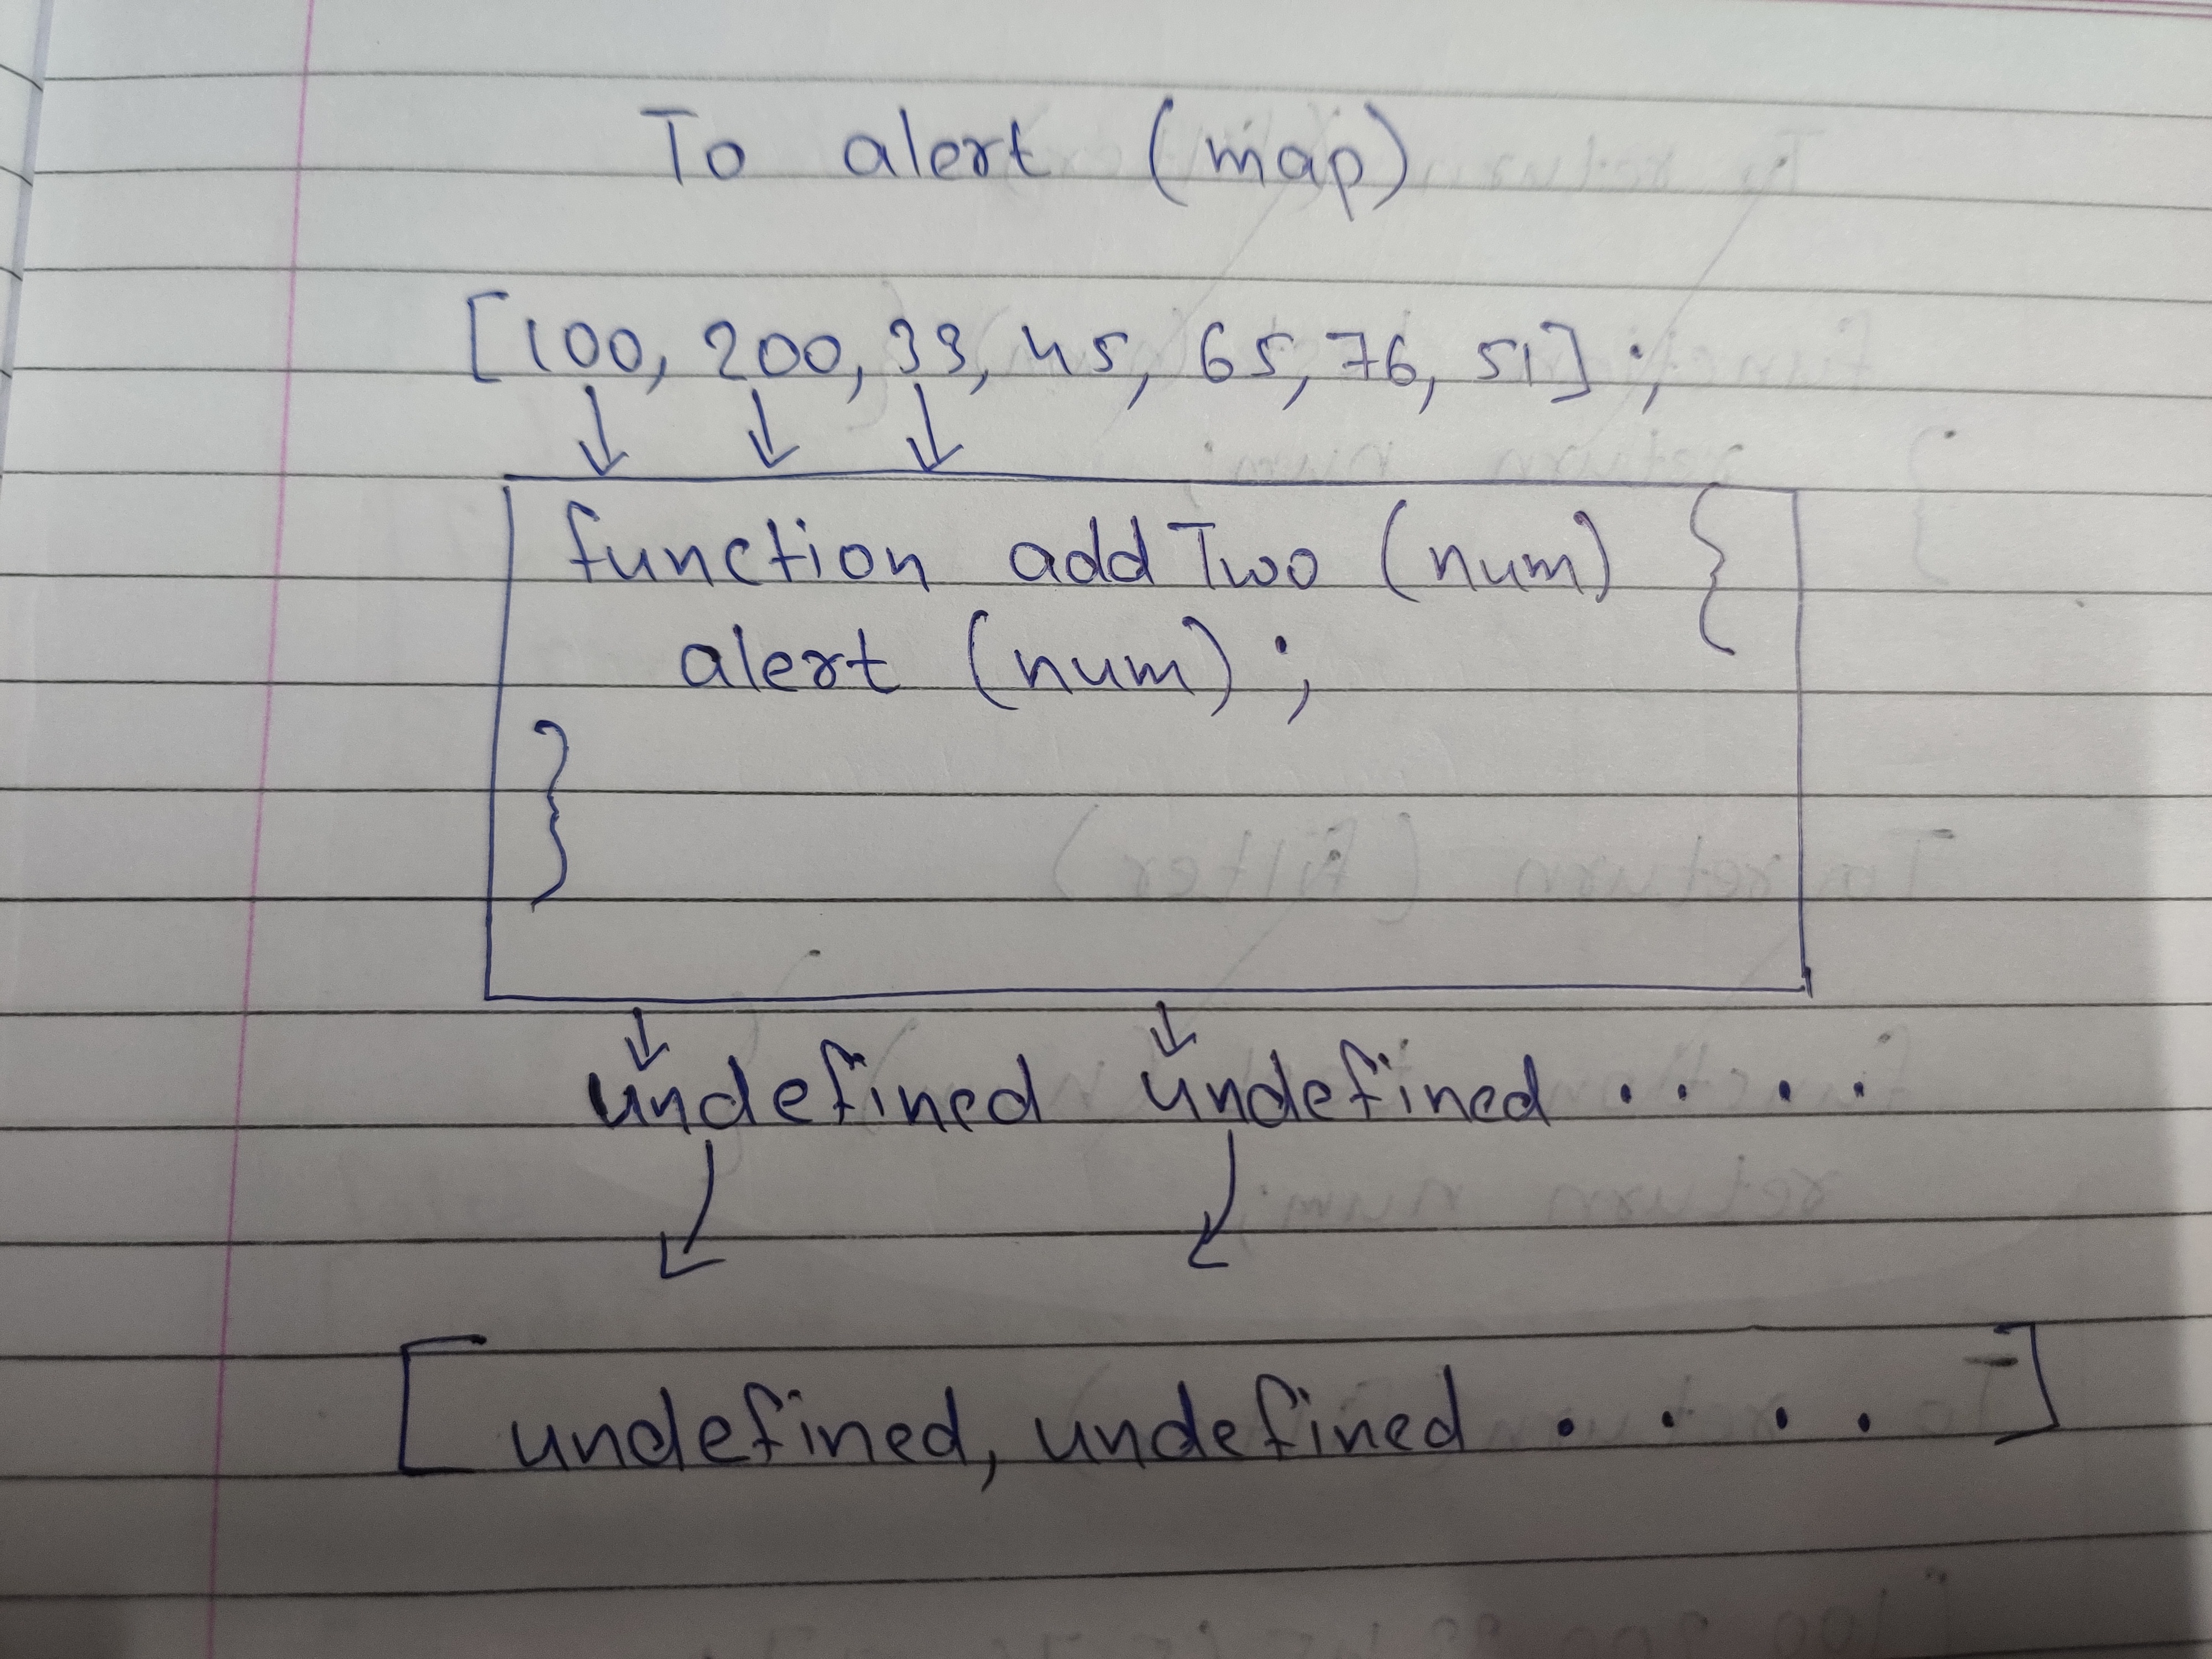 To alert (map)
[100, 200, 33, 45, 65, 76, 51];
function addTwo (num) {
alert (num);
}
undefined undefined ....
[undefined, undefined ....]